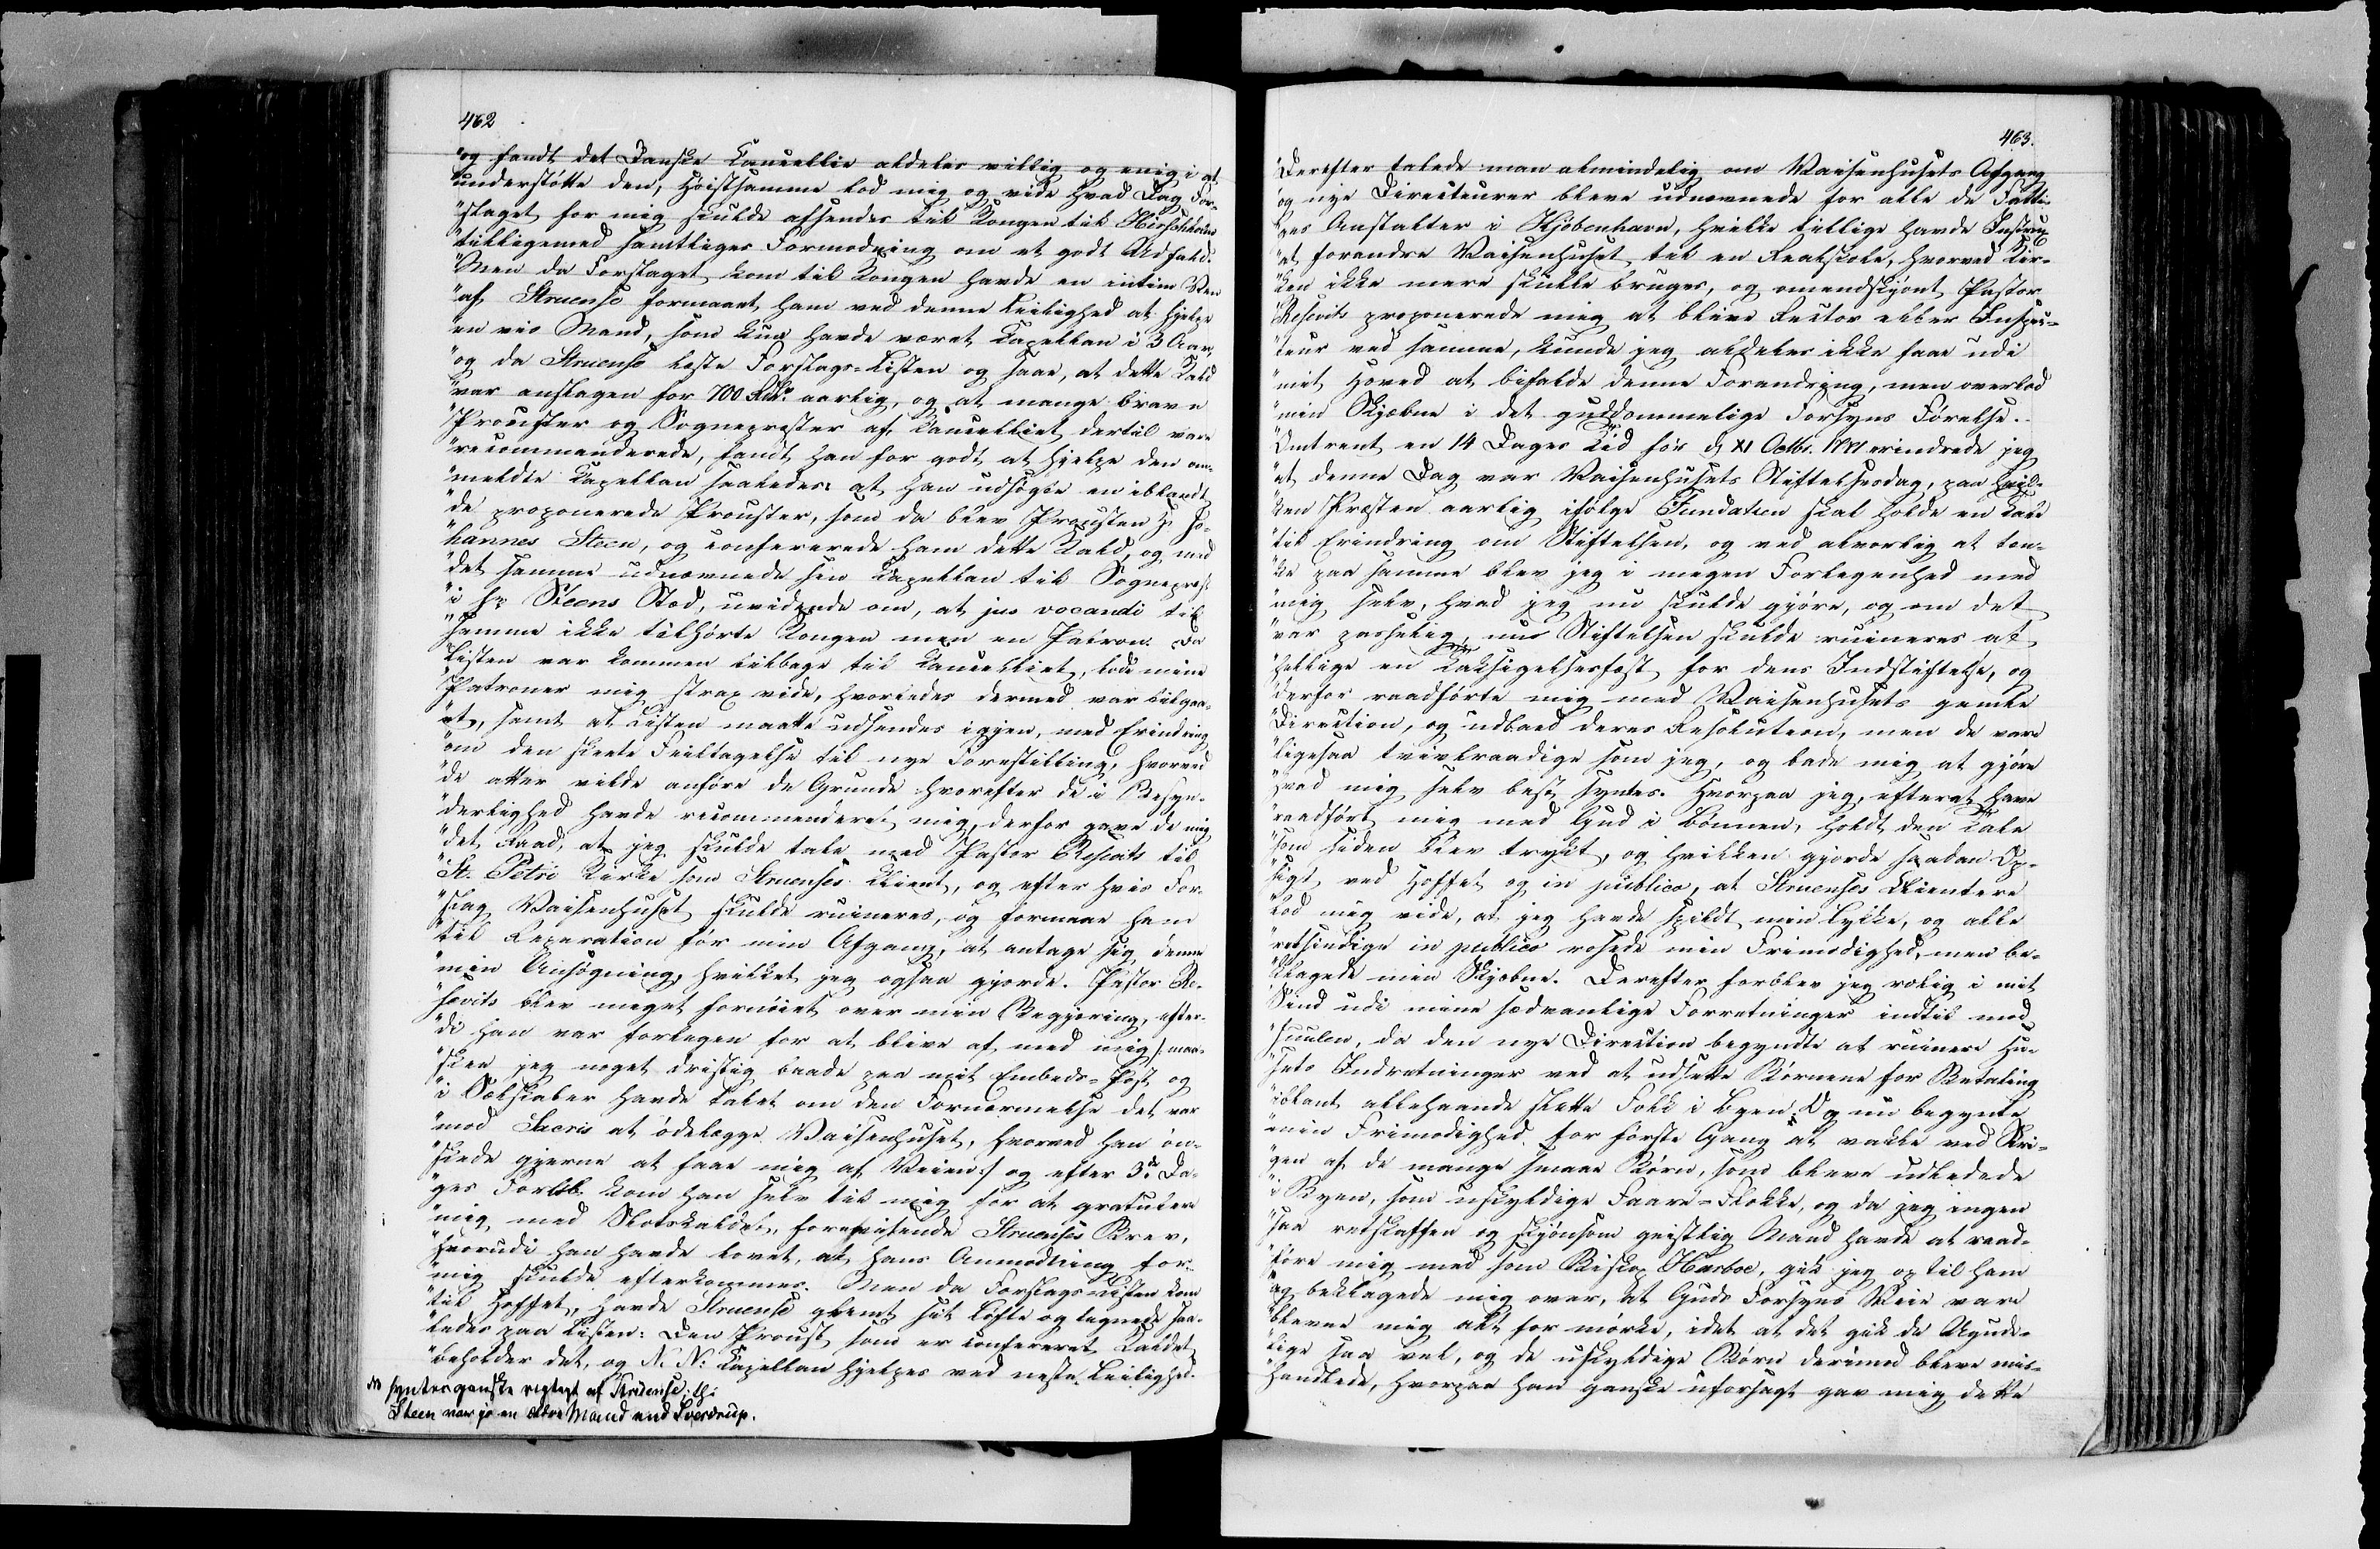 462
"og fandt det Danske Cancellie aldeles villig og enig i at
"understötte den, Höistsamme lod mig og vide hvad Dag For-
"slaget for mig skulde afsendes til Kongen til Hirschholm
"tilligemed samtliges Formodning om et godt Udfald.
"Men da Forslaget kom til Kongen havde en intim Ven
"af Struense formaaet ham ved denne Leilighed at hjelpe
"en vis Mand, som kun havde været Capellan i 3 Aar,
"og da Struense læste Forslags-Listen og saae, at dette Kald
"var anslagen for 700 Rdlr. aarlig, og at mange brave
"Provster og Sognepræster af Cancelliet dertil vare
"recommenderede, fandt han for godt at hjelpe den om-
"meldte Capellan saaledes: at han udsögte en iblandt
"de proponerede Provster, som da blev Provsten Hr Jo-
"hannes Steen, og confererede ham dette Kald, og med
"det samme udnævnede sin Capellan til Sognepræst
"i Hr Steens Sted, uvidende om, at jus vocandi til
"samme ikke tilhörte Kongen men en Patron. Da
"Listen var kommen tilbage til Cancelliet, lode mine
"Patroner mig strax vide, hvorledes dermed var tilgaa-
"et, samt at Listen maatte udsendes igjen, med Erindring
"om den skeete Feiltagelse til nye Forestilling, hvorved
"de atter vilde anföre de Grunde hvorefter de i Besyn-
"derlighed havde recommenderet mig, derfor gave de mig
"det Raad, at jeg skulde tale med Pastor Resevits til
"St. Petri Kirke som Struenses Client, og efter hvis For-
"slag Vaisenhuset skulde ruineres, og formaae ham
"til Reparation för min Afgang, at antage sig denne
"min Ansögning, hvilket jeg ogsaa gjorde. Pastor Re-
"sevits blev meget fornöiet over min Begjæring, efter-
"di han var forlegen for at blive af med mig /: maa-
"skee jeg noget dristig baade paa mit Embeds-Post og
"i Selskaber havde talet om den Fornærmelse det var
"mod Sacris at ödelægge Vaisenhuset, hvorved han ön-
"skede gjerne at faae mig af Veien :/ og efter 3de Da-
"ges Forlöb kom han selv til mig for at gratulere
"mig med Slotskaldet, forevisende Struenses Brev,
"hvorudi han havde lovet, at hans Anmodning for
"mig skulde efterkommes. Men da Forslags-Listen kom
"til Hoffet, havde Struense glemt sit Löfte og tegnede saa-
"ledes paa Listen: Den Provst, som er confereret Kaldet,
"beholder det, og N. N. Capellan hjelpes ved neste Leilighed.
synteganske rigtigt af Struense, th:
Steen var jo en ældre Mand end Sverdrup.
463.
"Derefter talede man almindelig om Vaisenhusets Afgang
"og nye Directeurer bleve udnævnede for alle de Fatti-
"ges Anstalter i Kjöbenhavn, hvilke tillige havde Instrux
"at forandre Vaisenhuset til en Realskole, hvorved Kir-
"ken ikke mere skulle bruges, og omendskjönt Pastor
"Resevits proponerede mig at blive Rector eller Inspec-
"teur ved samme, kunde jeg aldeles ikke faae udi
"mit Hoved at bifalde denne Forandring, men overlod
"min Skjæbne i det guddommelige Forsyns Förelse.
"Omtrent en 14 Dages Tid för d. XI Octbr. 1771 erindrede jeg
"at denne Dag var Vaisenhusets Stiftelsesdag, paa hvil-
"ken Præsten aarlig ifölge Fundatsen skal holde en Tale
"til Erindring om Stiftelsen, og ved alvorlig at tæn-
"ke paa samme blev jeg i megen Forlegenhed med
"mig selv, hvad jeg nu skulde gjöre, og om det
"var passelig, nu Stiftelsen skulde ruineres at
"hellige en Taksigelsesfest for dens Indstiftelse, og
"derfor raadförte mig med Vaisenhusets gamle
"Direction, og udbad deres Resolution, men de vare
"ligesaa tvivlraadige som jeg, og bade mig at gjöre
"hvad mig selv best syntes. Hvorpaa jeg, efterat have
"raadfört mig med Gud i Bönnen, holdt den Tale
"som siden blev trykt, og hvilken gjorde saadan Op-
"sigt ved Hoffet og in publico, at Struenses Clientere
"lod mig vide, at jeg havde spildt min Lykke, og alle
"retsindige in publico roesede min Frimodighed, men be-
"klagede min Skjæbne. Derefter forblev jeg rolig i mit
"Sind udi mine sædvanlige Forretninger indtil mod
"Juulen, da den nye Direction begyndte at ruinere Hu-
"sets Indretninger ved at udsette Börnene for Betaling
"iblant allehaande slette Folk i Byen. Og nu begynte
"min Frimodighed for förste Gang at vakle ved Skri-
"gen af de mange smaae Börn, som bleve udledede
"i Byen, som uskyldige Faare-Flokke, og da jeg ingen
"saa retskaffen og skjönsom geistlig Mand havde at raad-
"före mig med som Biskop Harboe, gik jeg op til ham
"og beklagede mig over, at Guds Forsyns Veie vare
"blevne mig alt for mörke, idet at det gik de Ugude-
"lige saa vel, og de uskyldige Börn derimod bleve mis-
"handlede, hvorpaa han ganske uforsagt gav mig dette